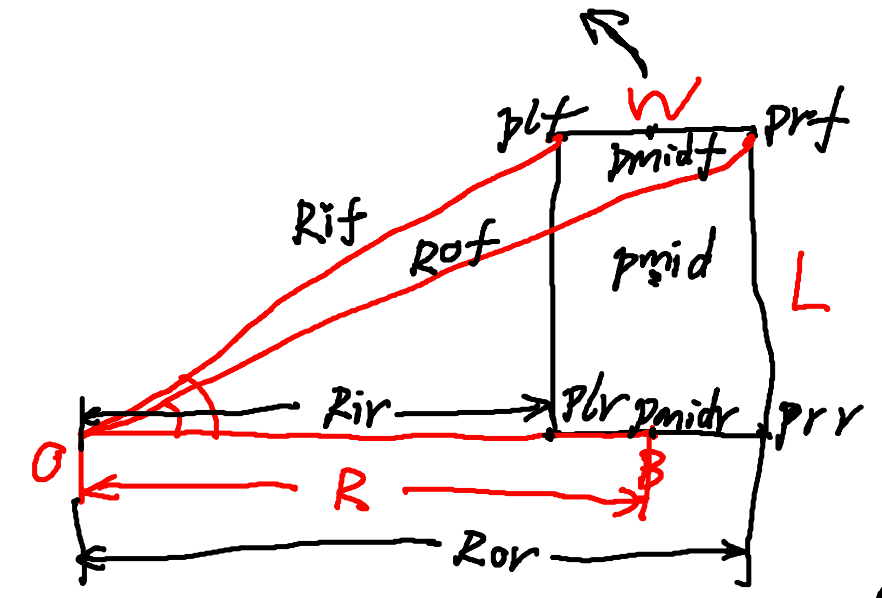 W
plf
prf
pmidf
Rif
Rof
pmid
L
Rir
plr
pmidr
prr
O
B
R
Ror